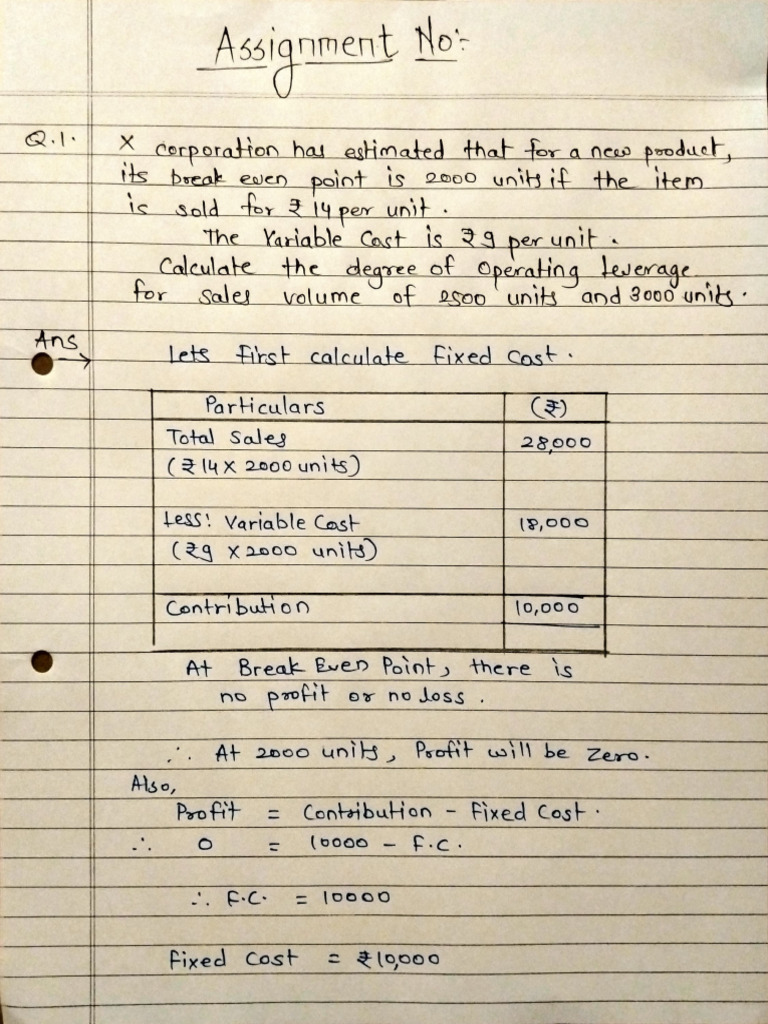 Assignment No:-
Q.1. X corporation has estimated that for a new product,
its break even point is 2000 units if the item
is sold for ₹ 14 per unit.
The Variable Cost is ₹9 per unit.
Calculate the degree of Operating Leverage
for sales volume of 2500 units and 3000 units.
Ans → Lets first calculate Fixed Cost.
Particulars (₹)
Total Sales 28,000
(₹14 X 2000 units)
Less: Variable Cost 18,000
(₹9 X 2000 units)
Contribution 10,000
At Break Even Point, there is
no profit or no loss.
∴ At 2000 units, Profit will be Zero.
Also,
Profit = Contribution - Fixed Cost.
∴ 0 = 10000 - F.C.
∴ F.C. = 10000
Fixed Cost = ₹10,000